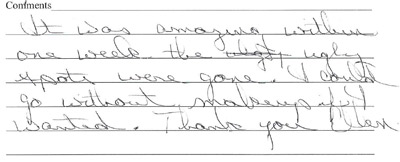 Comments
It was amazing within
one week the ugly
spots were gone. I could
go without makeup if I
wanted. Thank you Ellen